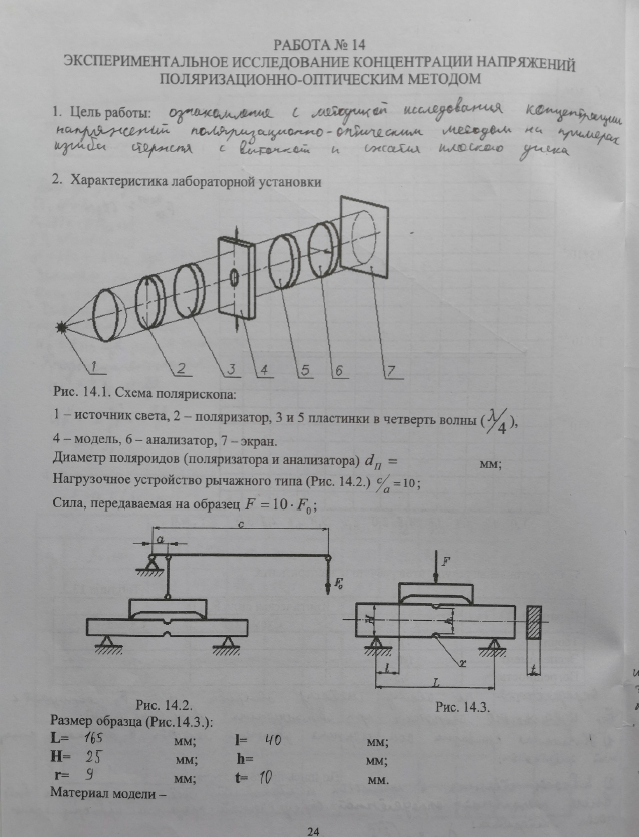 РАБОТА № 14
ЭКСПЕРИМЕНТАЛЬНОЕ ИССЛЕДОВАНИЕ КОНЦЕНТРАЦИИ НАПРЯЖЕНИЙ
ПОЛЯРИЗАЦИОННО-ОПТИЧЕСКИМ МЕТОДОМ
1. Цель работы: ознакомление с методикой исследования концентрации
напряжений поляризационно-оптическим методом на примерах
изгиба стержня с выточкой и сжатия плоского диска
2. Характеристика лабораторной установки
1 2 3 4 5 6 7
Рис. 14.1. Схема полярископа:
1 – источник света, 2 – поляризатор, 3 и 5 пластинки в четверть волны (λ/4),
4 – модель, 6 – анализатор, 7 – экран.
Диаметр поляроидов (поляризатора и анализатора) dп = мм;
Нагрузочное устройство рычажного типа (Рис. 14.2.) c/a = 10;
Сила, передаваемая на образец F = 10 · F₀;
c
a
F₀
F
H
h
r
l
L
t
Рис. 14.2. Рис. 14.3.
Размер образца (Рис.14.3.):
L= 165 мм; l= 40 мм;
H= 25 мм; h= мм;
r= 9 мм; t= 10 мм.
Материал модели –
24